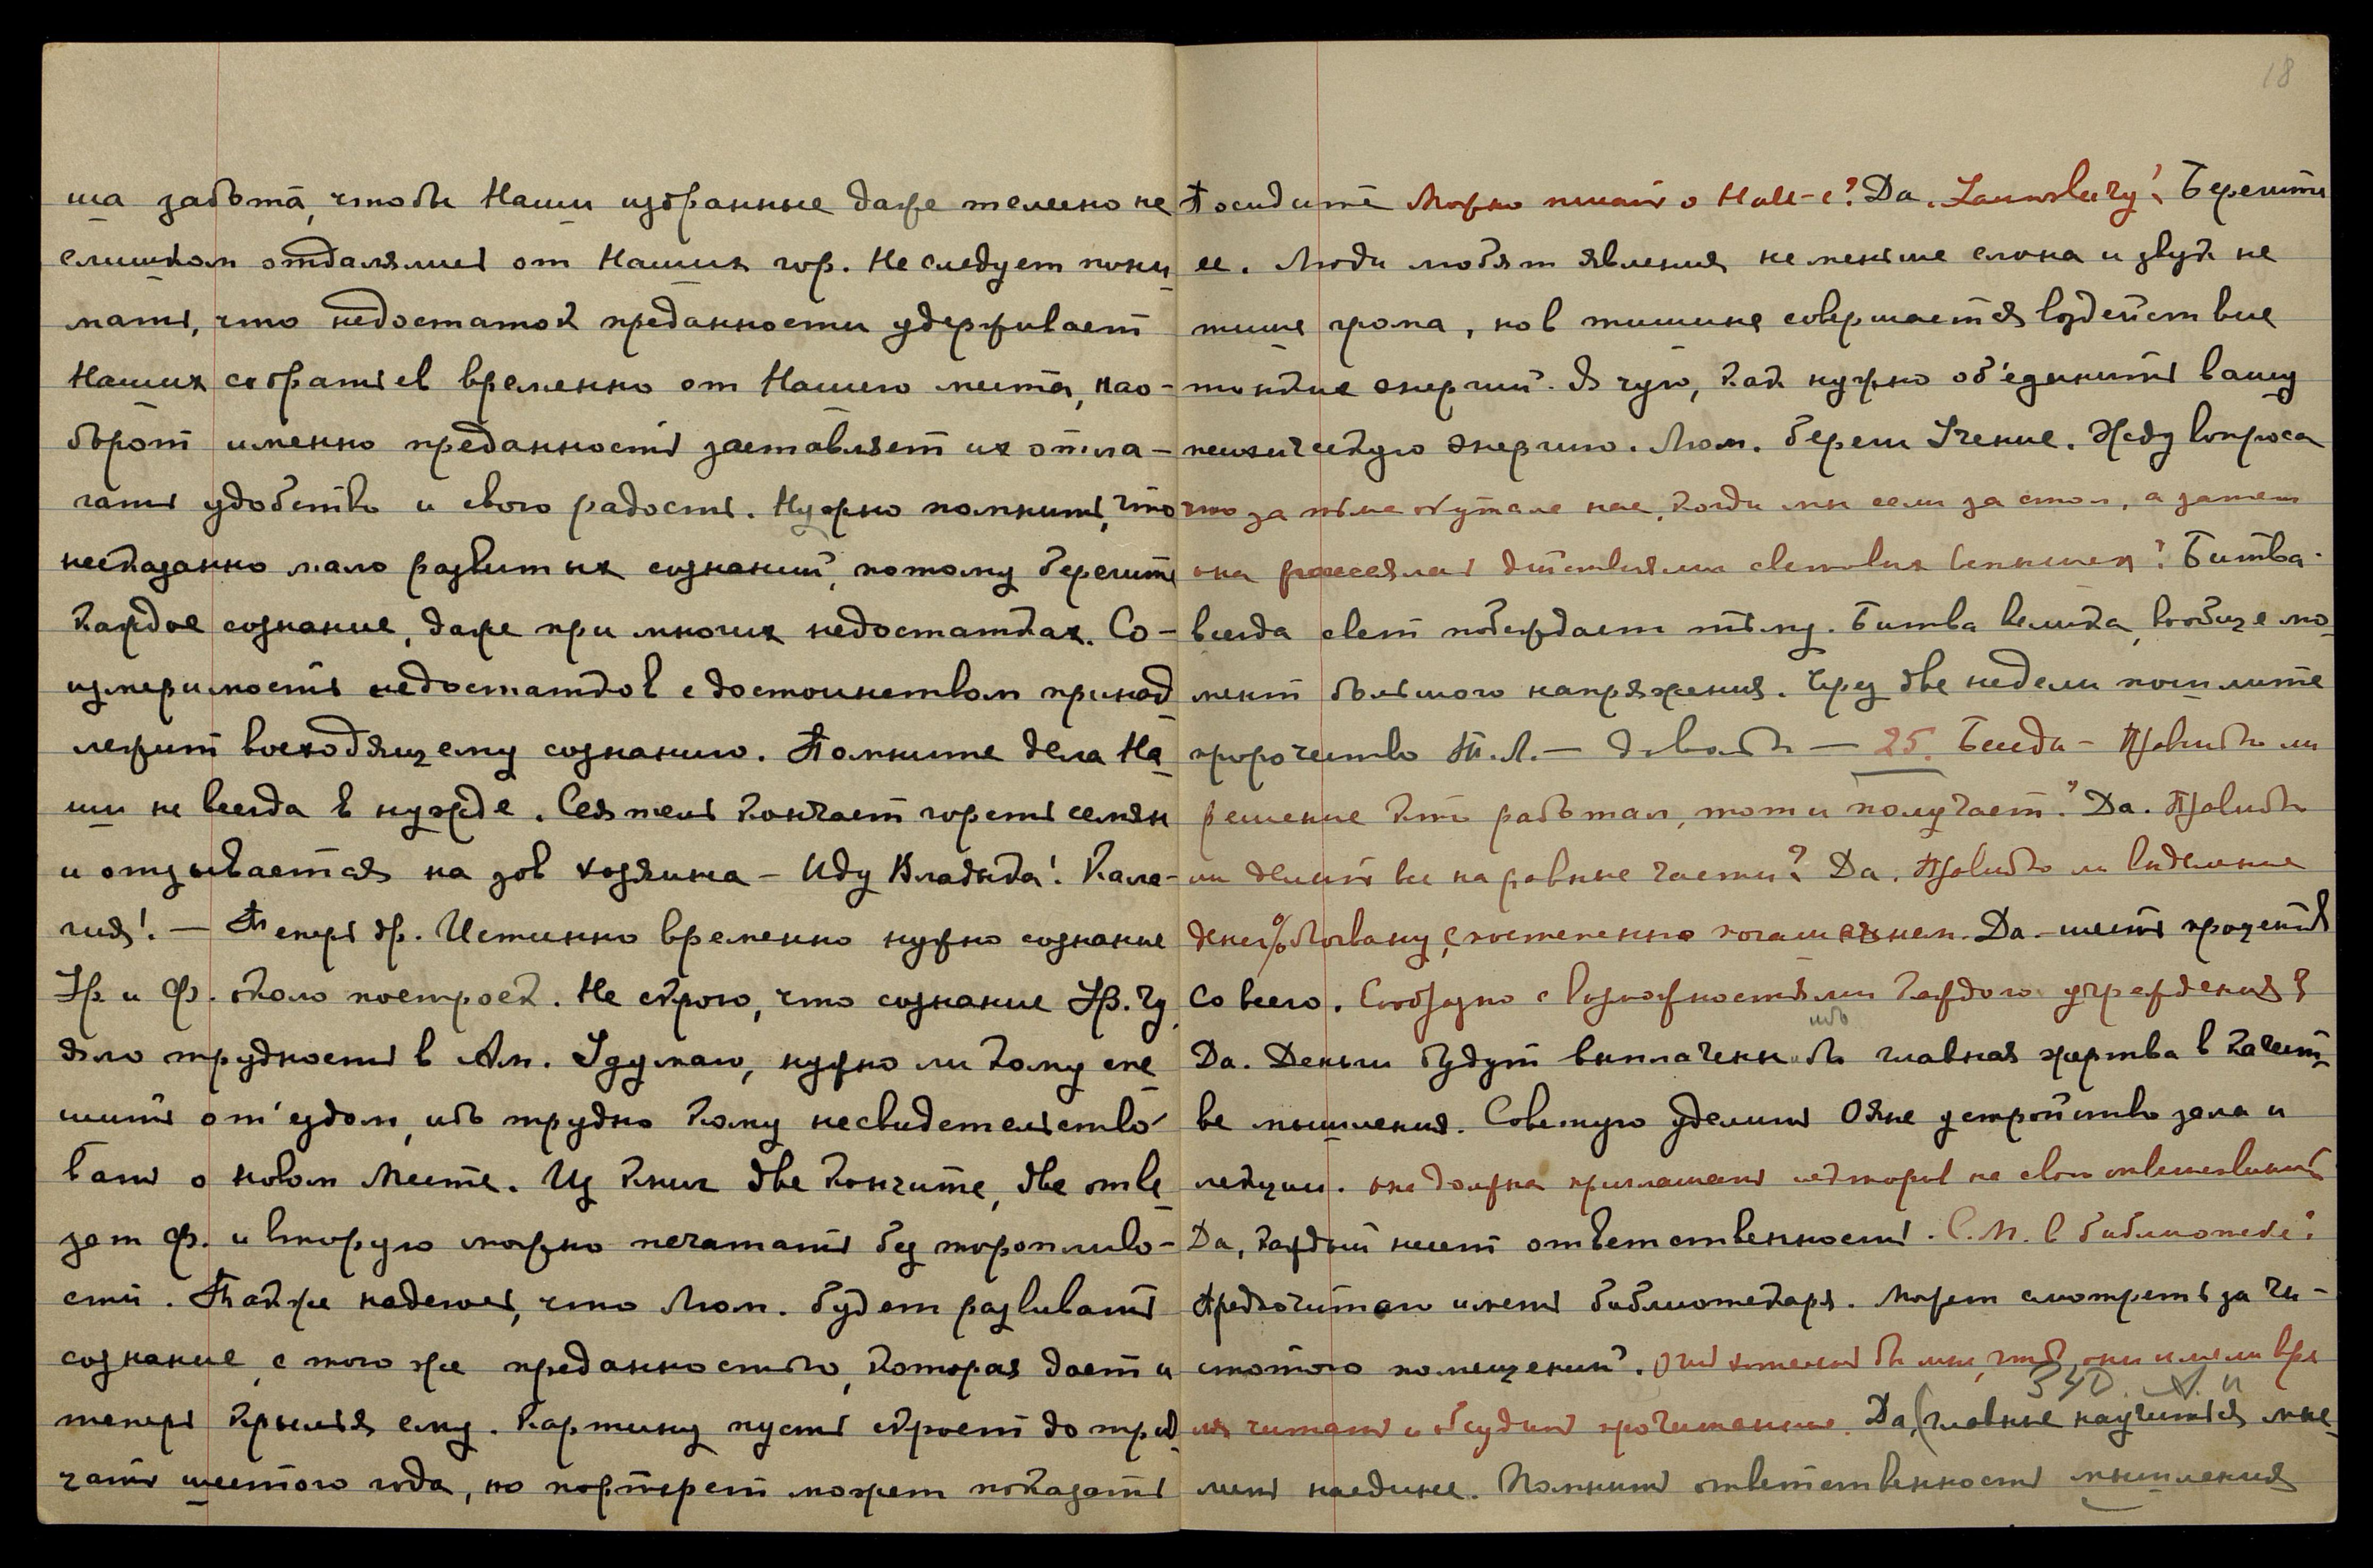 ша забота, чтобы Наши избранные даже телесно не
слишком отдалялись от Наших гор. Не следует пони
мать, что недостаток преданности удерживает
Наших собратьев временно от Нашего места, нао-
борот именно преданность заставляет их отла-
гать удобство и свою радость. Нужно помнить, что
несказанно мало развитых сознаний, потому берегите
каждое сознание, даже при многих недостатках. Со-
измеримость недостатков с достоинством принад
лежит восходящему сознанию. Помните дела На
ши не всегда в нужде. Сеятель кончает горсть семян
и отзывается на зов хозяина – Иду Владыка! Кала-
гия! — Теперь др. Истинно временно нужно сознание
Ур. и Ф. около построек. Не скрою, что сознание Ур. чу
яло трудность в Ам. Удумаю, нужно ли кому спе
шить от'ездом, ибо трудно кому не свидетельство
вать о новом Месте. Из книг две кончите, две отве
зет Ф. и вторую можно печатать без торопливо-
сти. Также надеюсь, что Люм. будет развивать
сознание, с тою же преданностью, которая дает и
теперь крылья ему. Картину пусть скроет до трид
цать шестого года, но портрет может показать
18
Посидите Можно писать о Hall-е? Да. Берегите
ее. Люди любят явления не меньше слона и звук не
тише грома, но в тишине совершается воздействие
тонкие энергий. Я чую, как нужно об'единить вашу
психическую энергию. Люм. береги Учение. Жду вопроса
что за тьма окутала нас, когда мы сели за стол, а затем
она рассеялась действиями световых вспышек? Битва –
всегда свет побеждает тьму. Битва велика, вообще мо
мент большого напряжения. Чрез две недели пошлите
пророчество Т.Л. — довольно — 25. Беседа – Правильно ли
решение кто работал, тот и получает? Да. Правильно
ли делить все на равные части? Да. Правильно ли выделение
денег % Логвану, с постепенно погашением. Да – шесть процентов
со всего. Сообразно с возможностями каждого учреждения?
ибо
Да. Деньги будут выплачены, бы главная жертва в качест
ве мышления. Советую уделить Ояне устройство зала и
лекции. она должна приглашать лекторов на свою ответственность
Да, каждый несет ответственность. С.М. в библиотеке?
Предпочитаю иметь библиотекаря. Может смотреть за чи-
стотою помещений. Очень хотелось бы мне, чтоб они имели вре
340. А. Й
мя читать и обсудить прочитанное. Да, (главные научиться мыс
лить наедине. Помнить ответственность мышления